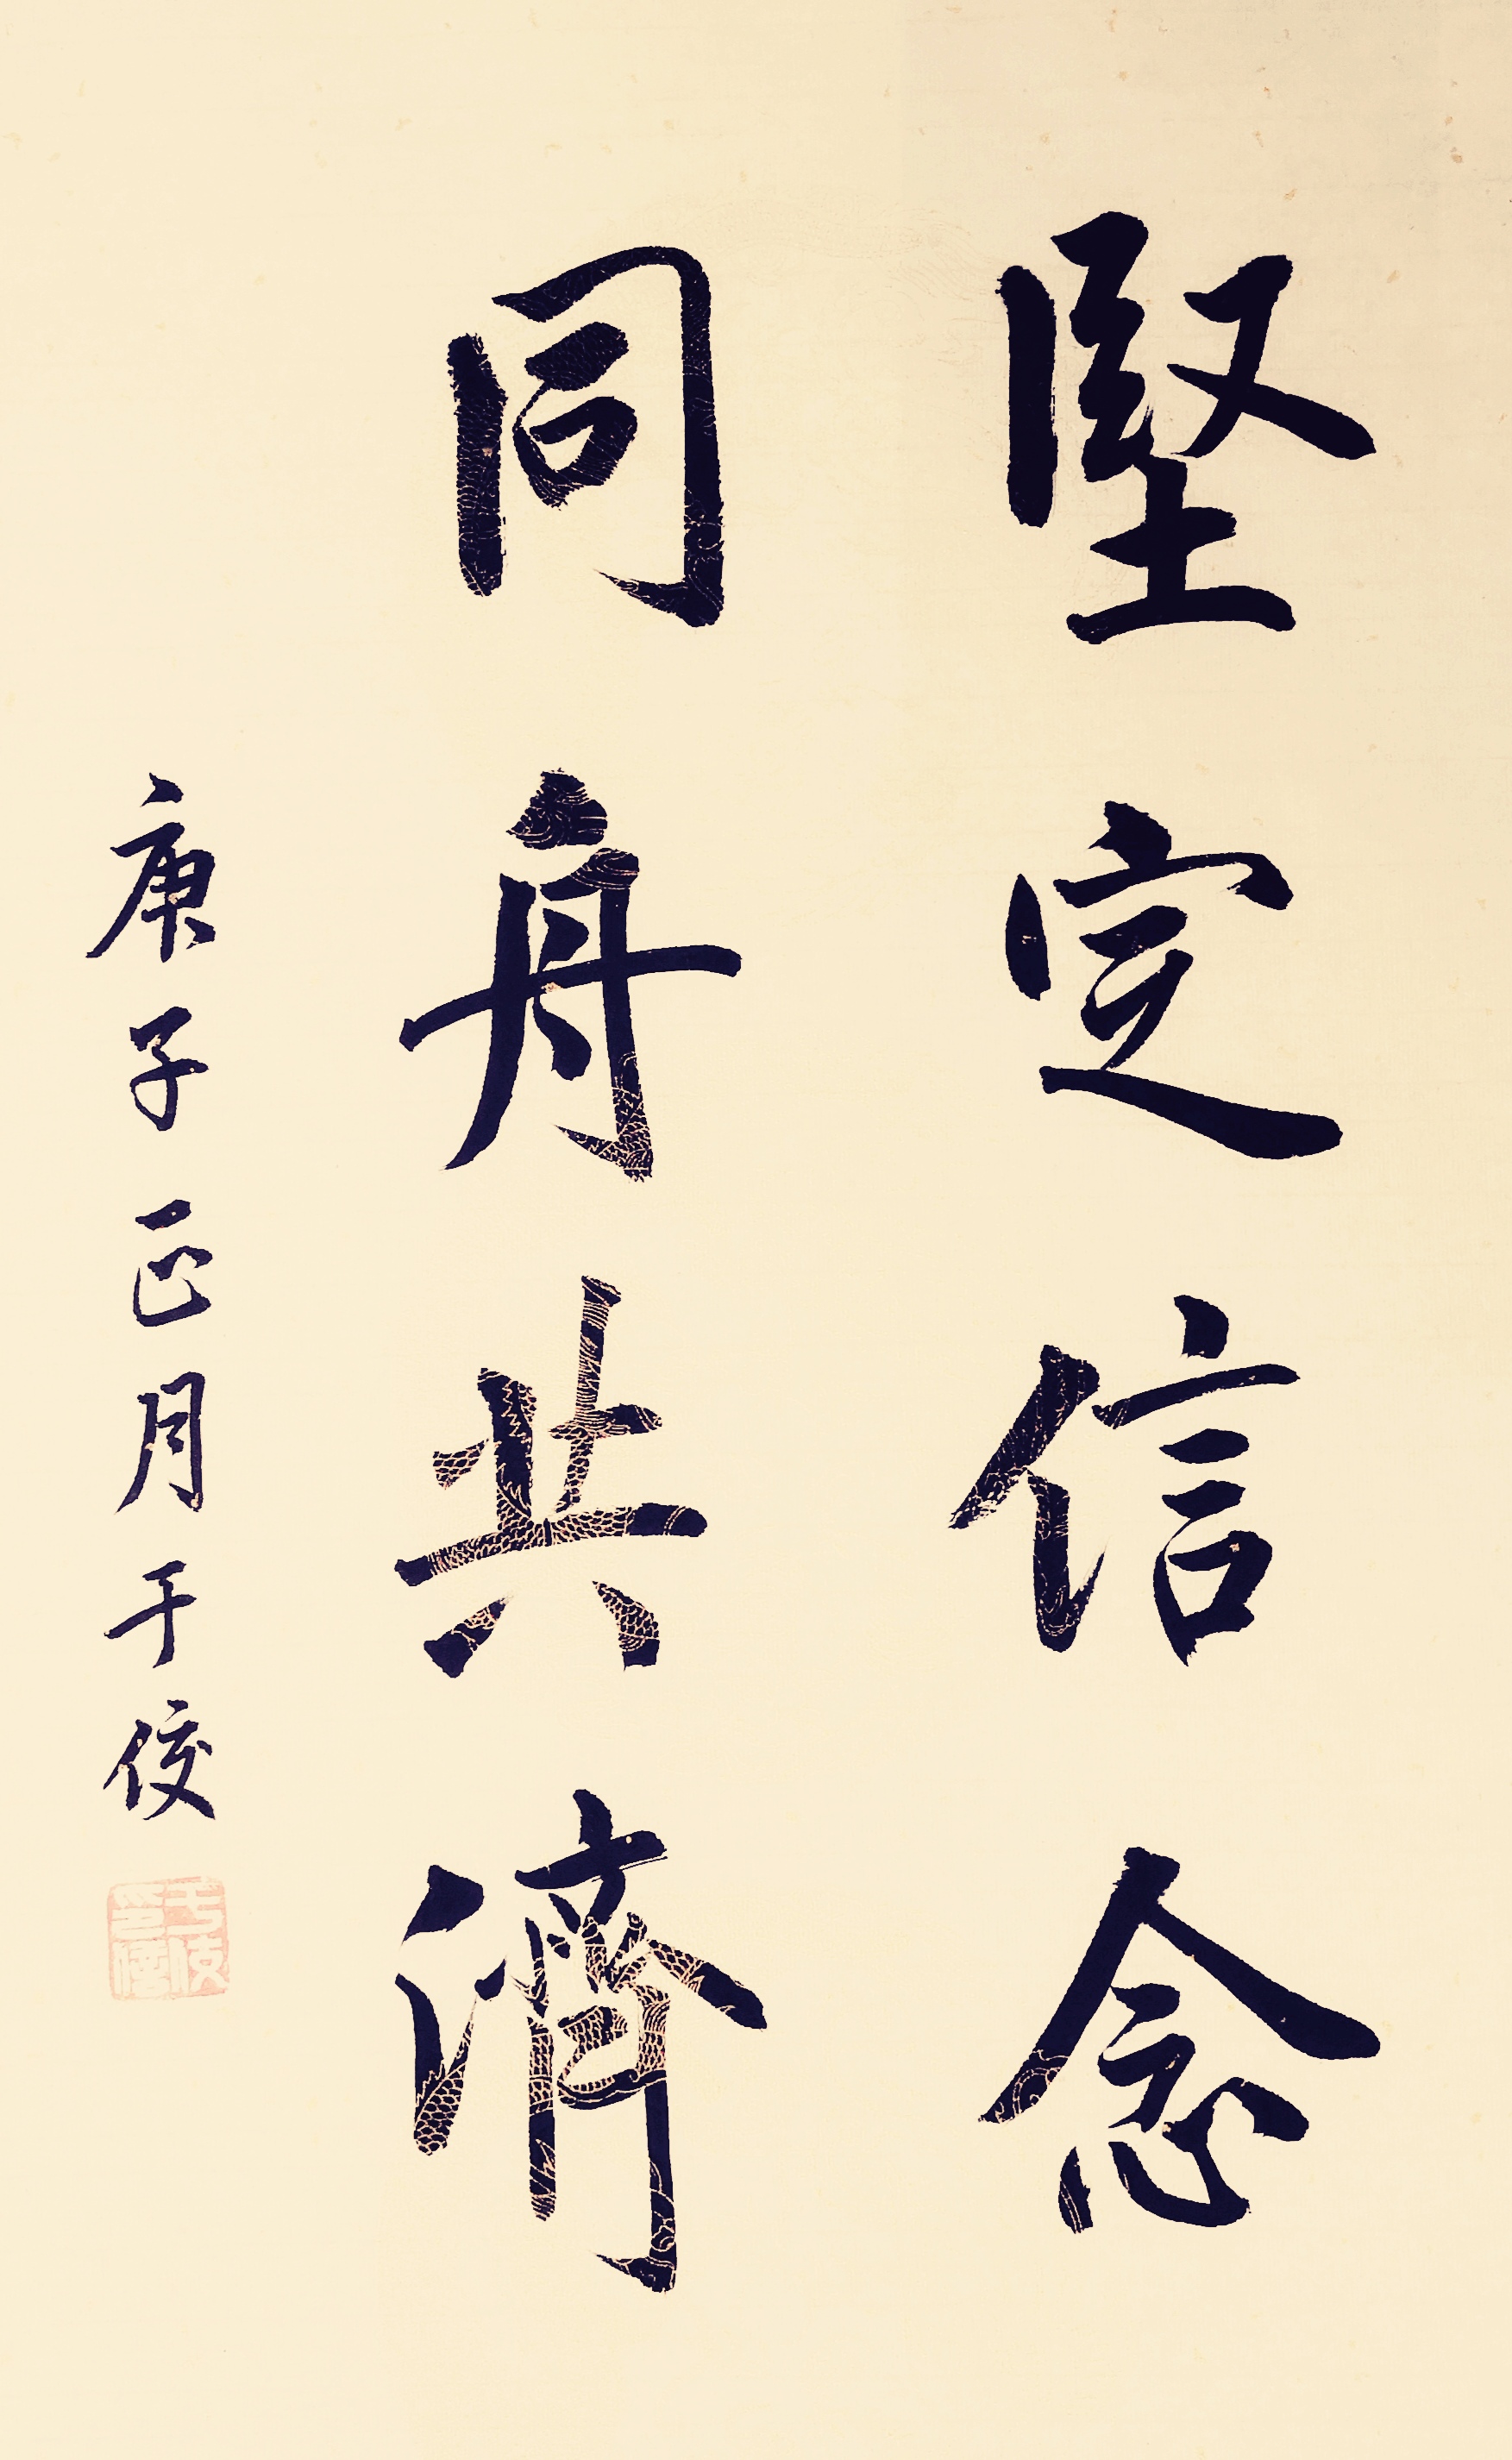 堅定信念
同舟共濟
庚子正月于佼